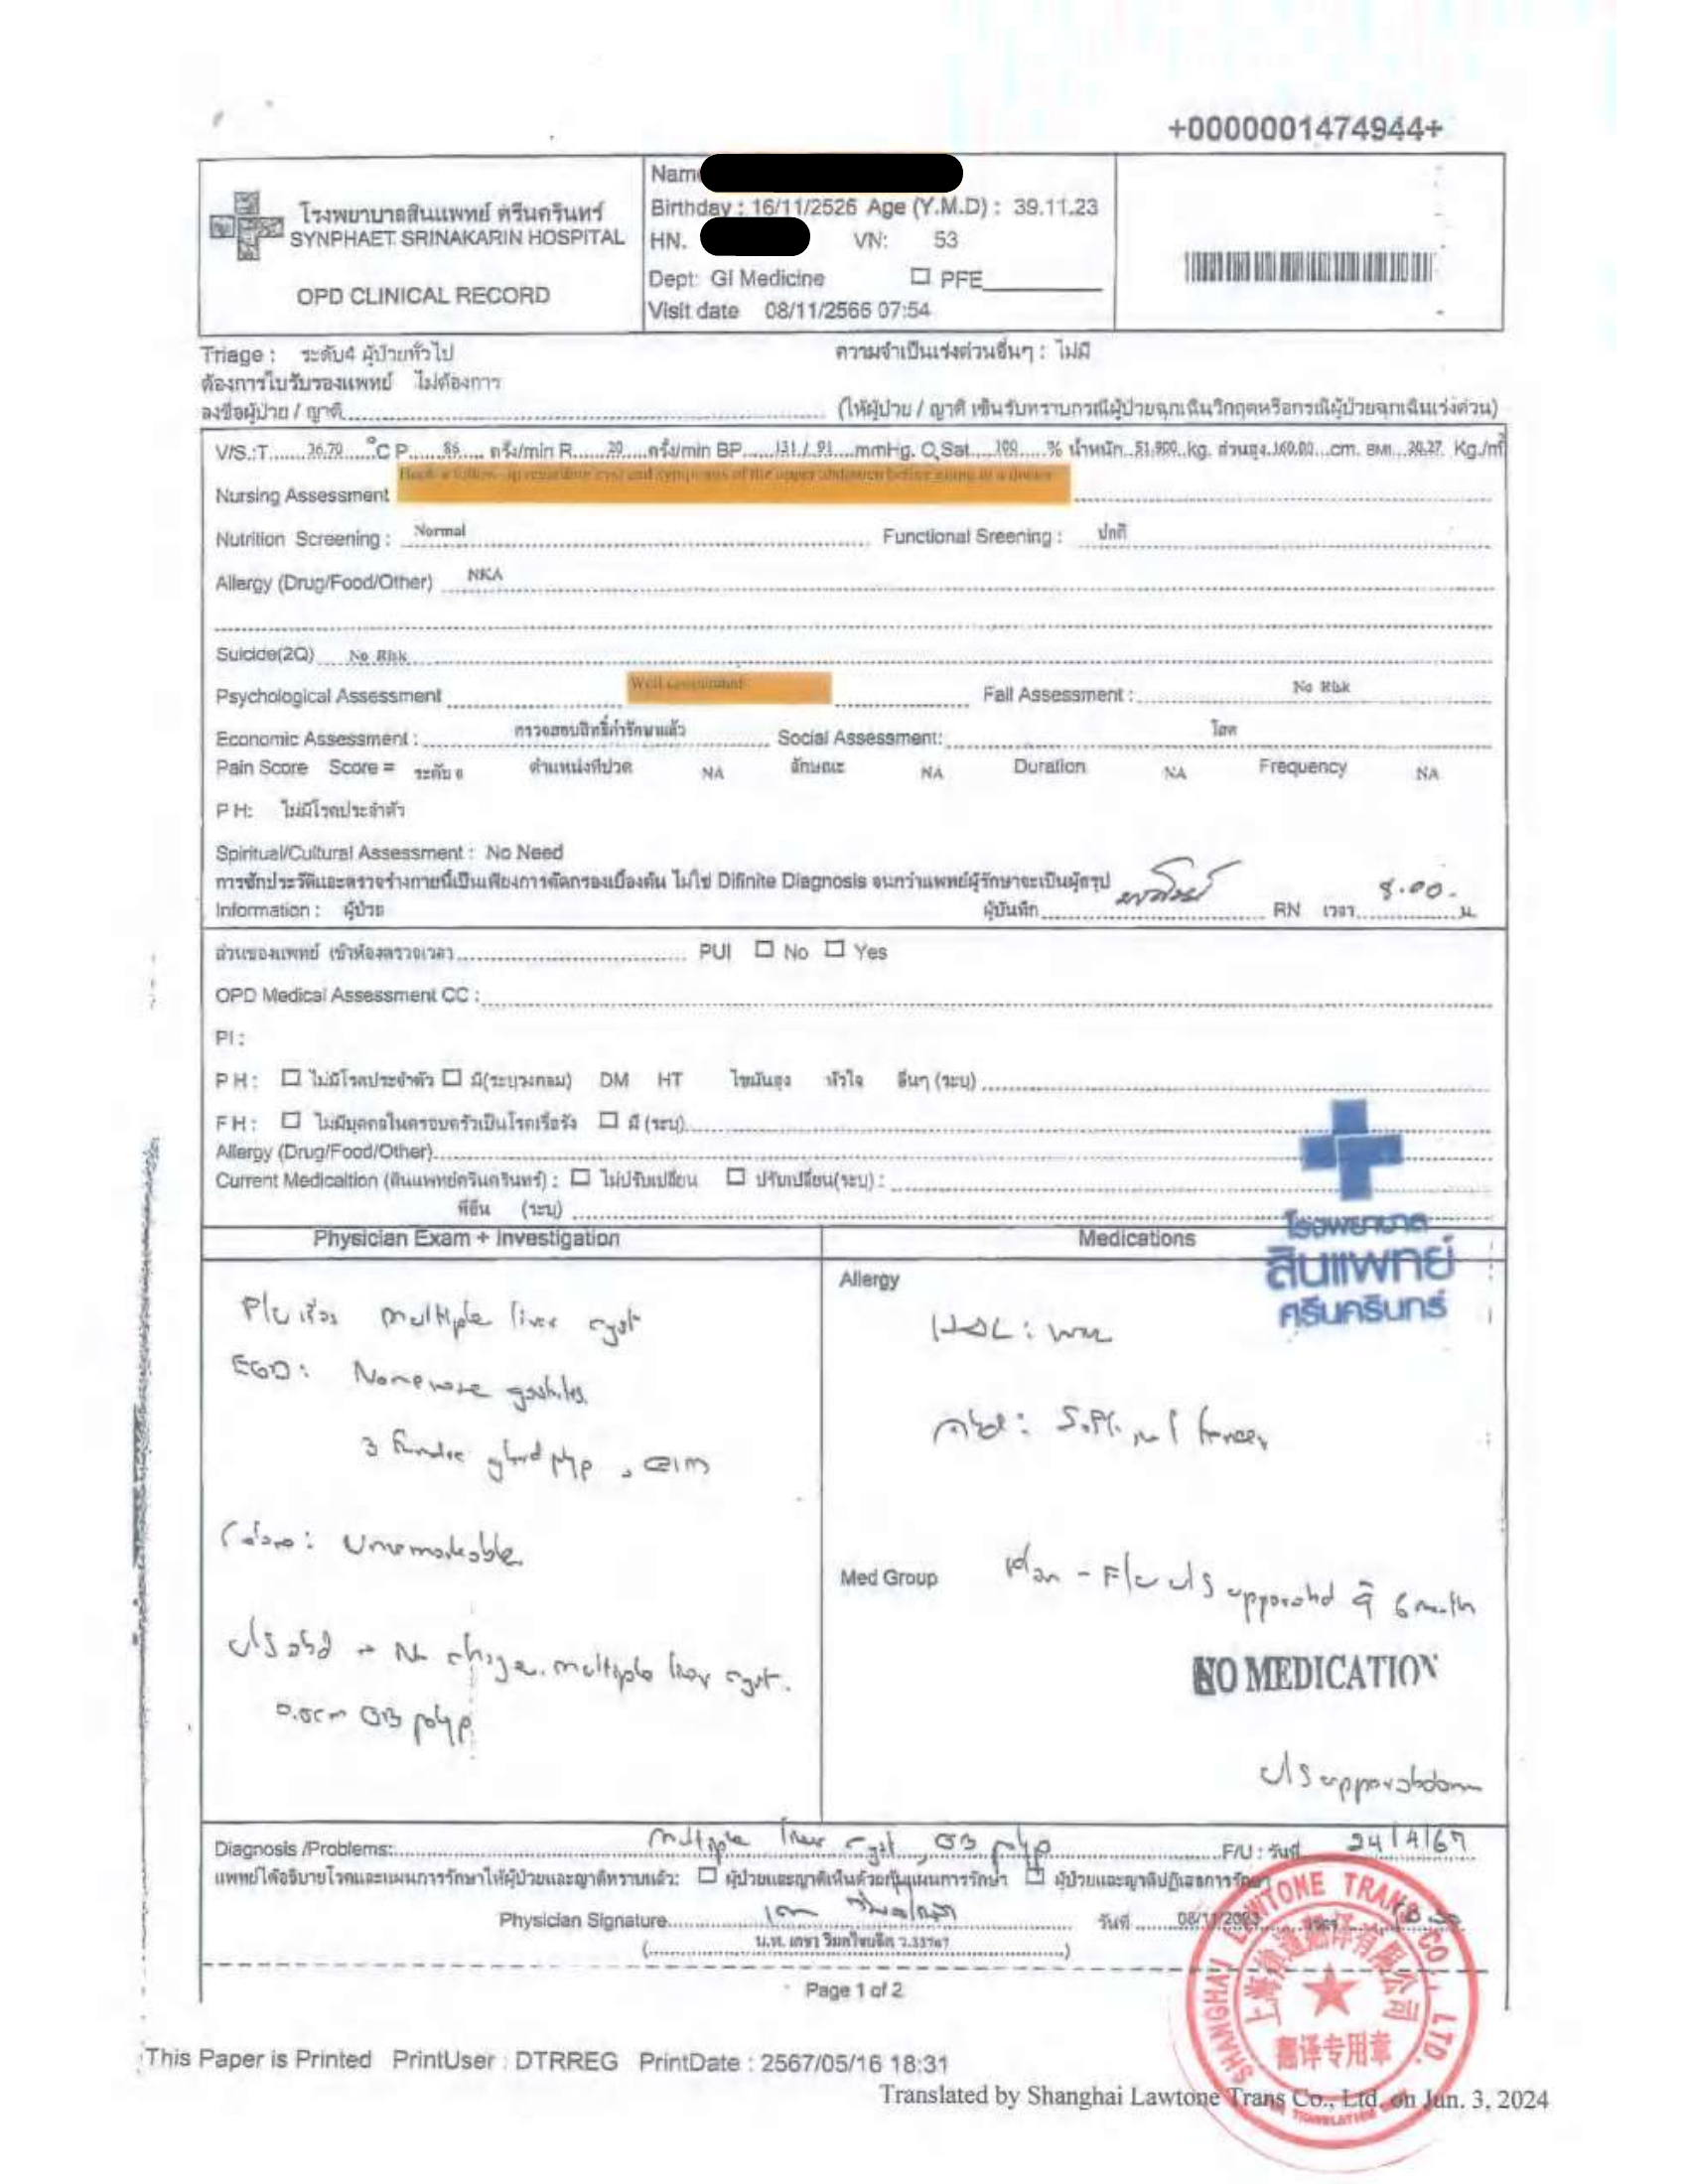 +0000001474944+
โรงพยาบาลสินแพทย์ ศรีนครินทร์
SYNPHAET SRINAKARIN HOSPITAL
OPD CLINICAL RECORD
Nam
Birthday : 16/11/2526 Age (Y.M.D) : 39.11.23
HN. VN: 53
Dept: GI Medicine ☐ PFE
Visit date 08/11/2566 07:54
Triage : ระดับ4 ผู้ป่วยทั่วไป ความจำเป็นเร่งด่วนอื่นๆ : ไม่มี
ต้องการใบรับรองแพทย์ ไม่ต้องการ
ลงชื่อผู้ป่วย / ญาติ (ให้ผู้ป่วย / ญาติ เซ็นรับทราบกรณีผู้ป่วยฉุกเฉินวิกฤตหรือกรณีผู้ป่วยฉุกเฉินเร่งด่วน)
V/S.:T 36.70 °C P 86 ครั้ง/min R 20 ครั้ง/min BP 131 / 91 mmHg. O2 Sat 100 % น้ำหนัก 51.900 kg. ส่วนสูง 160.00 cm. BMI 20.27 Kg./m²
Book a follow-up regarding cyst and symptoms of the upper abdomen before going to a doctor
Nursing Assessment
Nutrition Screening : Normal Functional Sreening : ปกติ
Allergy (Drug/Food/Other) NKA
Suicide(2Q) No Risk
Psychological Assessment Well Fall Assessment : No Risk
Economic Assessment : ตรวจสอบสิทธิ์ค่ารักษาแล้ว Social Assessment: โสด
Pain Score Score = ระดับ 0 ตำแหน่งที่ปวด NA ลักษณะ NA Duration NA Frequency NA
P H: ไม่มีโรคประจำตัว
Spiritual/Cultural Assessment : No Need
การซักประวัติและตรวจร่างกายนี้เป็นเพียงการคัดกรองเบื้องต้น ไม่ใช่ Difinite Diagnosis จนกว่าแพทย์ผู้รักษาจะเป็นผู้สรุป
Information : ผู้ป่วย ผู้บันทึก RN เวลา 8.00 น.
ส่วนของแพทย์ เข้าห้องตรวจเวลา PUI ☐ No ☐ Yes
OPD Medical Assessment CC :
PI :
P H : ☐ ไม่มีโรคประจำตัว ☐ มี(ระบุวงกลม) DM HT ไขมันสูง หัวใจ อื่นๆ (ระบุ)
F H : ☐ ไม่มีบุคคลในครอบครัวเป็นโรคเรื้อรัง ☐ มี (ระบุ)
Allergy (Drug/Food/Other)
Current Medicaltion (สินแพทย์ศรีนครินทร์) : ☐ ไม่ปรับเปลี่ยน ☐ ปรับเปลี่ยน(ระบุ) :
ที่อื่น (ระบุ)
โรงพยาบาล
สินแพทย์
ศรีนครินทร์
Physician Exam + Investigation Medications
Allergy
multiple liver cyst
EGD:
3 fundic gland polyp
Unremarkable
U/S → No change. multiple liver cyst.
GB polyp
Med Group
Plan - F/u U/S upper abd 6 month
NO MEDICATION
U/S upper abdomen
Diagnosis /Problems: multiple liver cyst, GB polyp F/U : วันที่ 24/4/67
แพทย์ได้อธิบายโรคและแผนการรักษาให้ผู้ป่วยและญาติทราบแล้ว: ☐ ผู้ป่วยและญาติเห็นด้วยกับแผนการรักษา ☐ ผู้ป่วยและญาติปฏิเสธการรักษา
Physician Signature วันที่ 08/11/2023
Page 1 of 2
SHANGHAI LAWTONE TRANS CO., LTD.
翻译专用章
This Paper is Printed PrintUser : DTRREG PrintDate : 2567/05/16 18:31
Translated by Shanghai Lawtone Trans Co., Ltd. on Jun. 3, 2024